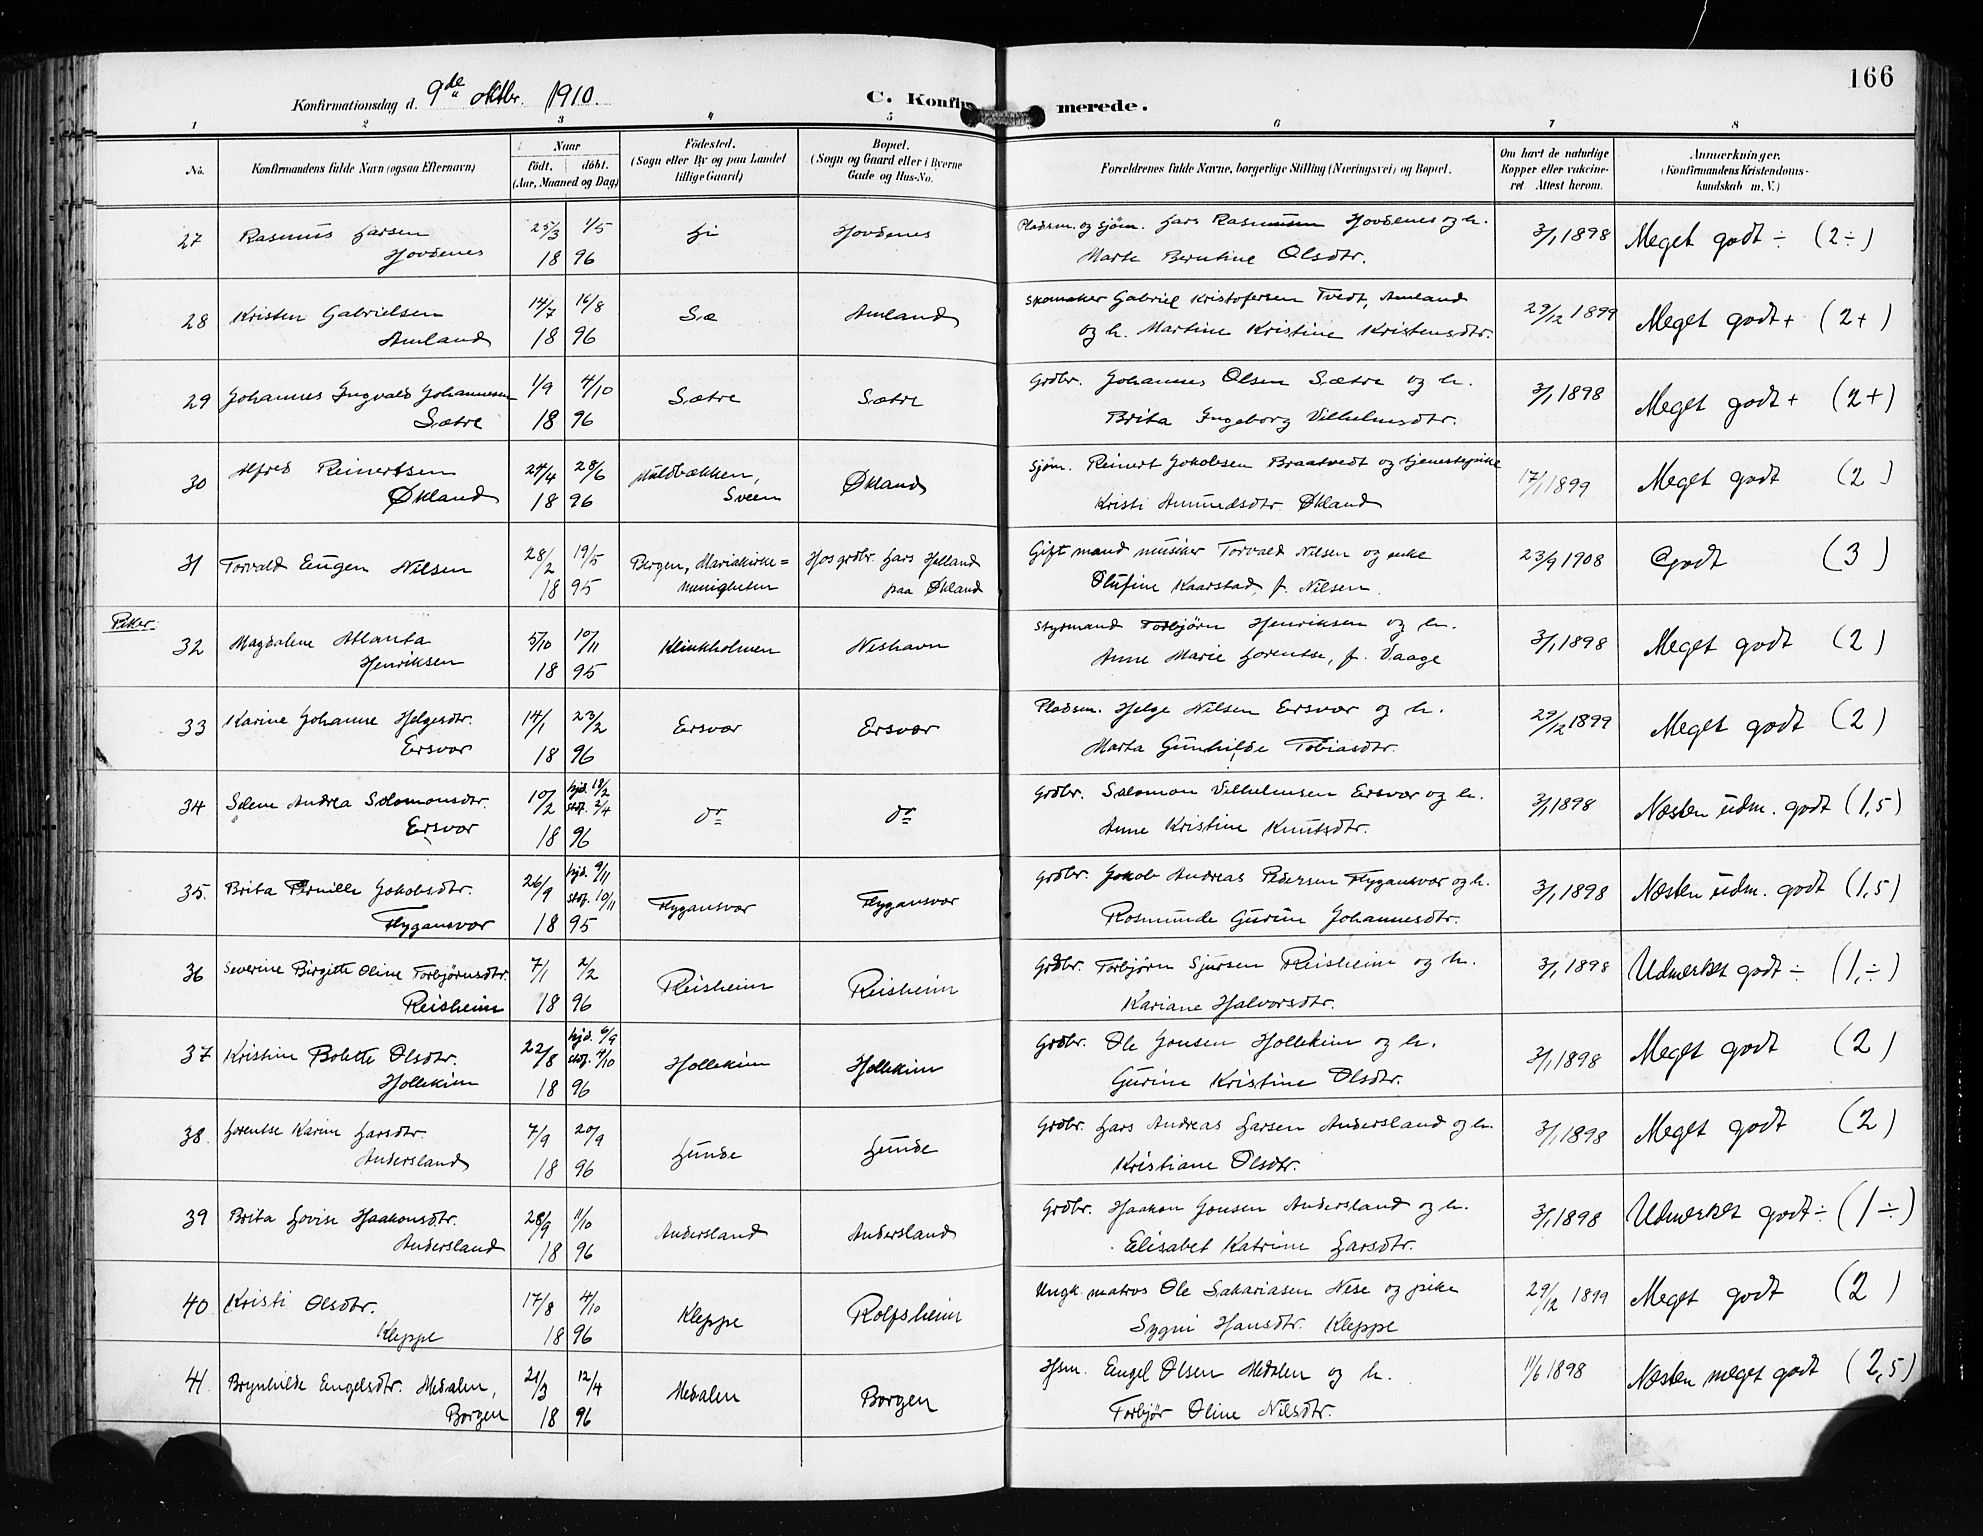 166
Konfirmationsdag d. 9de Oktbr. 1910. C. Konfir merede.
1 2 3 4 5 6 7 8
No. Konfirmandens fulde Navn (ogsaa Efternavn) Naar født. døbt. (Aar, Maaned og Dag) Fødested. (Sogn eller By og paa Landet tillige Gaard) Bopæl. (Sogn og Gaard eller i Byerne Gade og Hus-No. Forældrenes fulde Navne, borgerlige Stilling (Næringsvei) og Bopæl. Om havt de naturlige Kopper eller vakcineret. Attest herom. Anmærkninger. (Konfirmandens Kristendomskundskab m. V.)
27 Rasmus Larsen 25/3 1/5 Li Hovdenes Pladsm. og sjøm. Lars Rasmussen Hovdenes og h. 3/1 1898 Meget godt ÷ (2÷)
Hovdenes 18 96 Marte Berntine Olsdtr.
28 Kristen Gabrielsen 14/7 16/8 Sæ Amland Skomaker Gabriel Kristofersen Tvedt, Amland 29/12 1899 Meget godt + (2+)
Amland 18 96 og h. Martine Kristine Kristensdtr.
29 Johannes Ingvald Johannessen 1/9 4/10 Sætre Sætre Grdbr. Johannes Olsen Sætre og h. 3/1 1898 Meget godt + (2+)
Sætre 18 96 Brita Ingeborg Vilhelmsdtr.
30 Alfred Reinertsen 24/4 28/6 Muldbækken, Økland Sjøm. Reinert Jakobsen Braatvedt og tjenestepike 17/1 1899 Meget godt (2)
Økland 18 96 Sveen Kristi Amundsdtr. Økland
31 Torvald Eugen Nilsen 28/2 19/5 Bergen, Mariakirke= Hos grdbr. Lars Helland Gift mand musiker Torvald Nilsen og enke 23/9 1908 Godt (3)
18 95 menigheten paa Økland Olufine Kaarstad, f. Nilsen.
Piker:
32 Magdalene Atlanta 5/10 10/11 Klinkholmen Neshavn Styrmand Torbjørn Henriksen og h. 3/1 1898 Meget godt (2)
Henriksen 18 95 Anne Marie Lorentse, f. Vaage
33 Karine Johanne Helgesdtr. 14/1 23/2 Ersvær Ersvær Pladsm. Helge Nilsen Ersvær og h. 29/12 1899 Meget godt (2)
Ersvær 18 96 Marta Gunhilde Tobiasdtr.
34 Selene Andrea Salomonsdtr. 10/2 hjd. 18/2 stf. 2/4 do do Grdbr. Salomon Vilhelmsen Ersvær og h. 3/1 1898 Næsten udm. godt (1,5)
Ersvær 18 96 Anne Kristine Knutsdtr.
35. Brita Pernille Jakobsdtr. 26/9 hjd. 9/11 stf. 10/11 Flygansvær Flygansvær Grdbr. Jakob Andreas Pedersen Flygansvær og h. 3/1 1898 Næsten udm. godt (1,5)
Flygansvær 18 95 Rosmunde Gurine Johannesdtr.
36 Severine Birgitte Oline Torbjørnsdtr. 7/1 2/2 Reisheim Reisheim Grdbr. Torbjørn Sjursen Reisheim og h. 3/1 1898 Udmerket godt ÷ (1,÷)
Reisheim 18 96 Kariane Halvorsdtr.
37 Kristine Bolette Olsdtr. 22/8 hjd. 6/9 stf. 4/10 Hollekim Hollekim Grdbr. Ole Jonsen Hollekim og h. 3/1 1898 Meget godt (2)
Hollekim 18 96 Gurine Kristine Olsdtr.
38. Lorentse Karine Larsdtr. 7/9 20/9 Lunde Lunde Grdbr. Lars Andreas Larsen Andersland og h. 3/1 1898 Meget godt (2)
Andersland 18 96 Kristiane Olsdtr.
39 Brita Lovise Haakonsdtr. 28/9 11/10 Andersland Andersland Grdbr. Haakon Jonsen Andersland og h. 3/1 1898 Udmerket godt ÷ (1÷)
Andersland 18 96 Elisabet Katrine Larsdtr.
40 Kristi Olsdtr. 17/8 4/10 Kleppe Rolfsheim Ungk. matros Ole Sakariasen Nese og pike 29/12 1899 Meget godt (2)
Kleppe 18 96 Sygni Hansdtr. Kleppe
41. Brynhilde Engelsdtr. Medalen, 21/3 12/4 Medalen Borgen Hsm. Engel Olsen Medalen og h. 11/6 1898 Næsten meget godt (2,5)
Borgen 18 96 Torbjør Oline Nilsdtr.